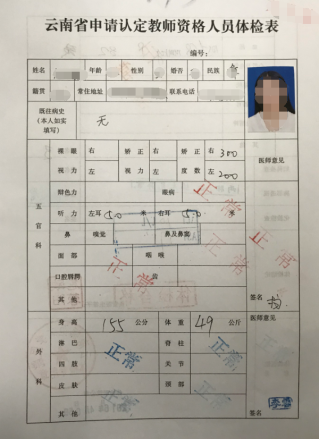 云南省申请认定教师资格人员体检表
编号：
姓名 年龄 性别 婚否 民族
籍贯 常住地址 联系电话
既往病史
（本人如实
填写）
无
五官科
裸眼 右 矫正 右 矫正 右 300
视力 左 视力 左 度数 左 200
医师意见
辩色力 眼病 正常
听力 左耳 5.0 米 右耳 5.0 米
正常
鼻 嗅觉 鼻及鼻窦 正常
面部 咽喉 正常
口腔唇腭 正常 齿
其他 签名
外科
身高 155 公分 体重 49 公斤 医师意见
淋巴 正常 脊柱 正常
四肢 关节 正常
皮肤 正常 颈部
其他 签名